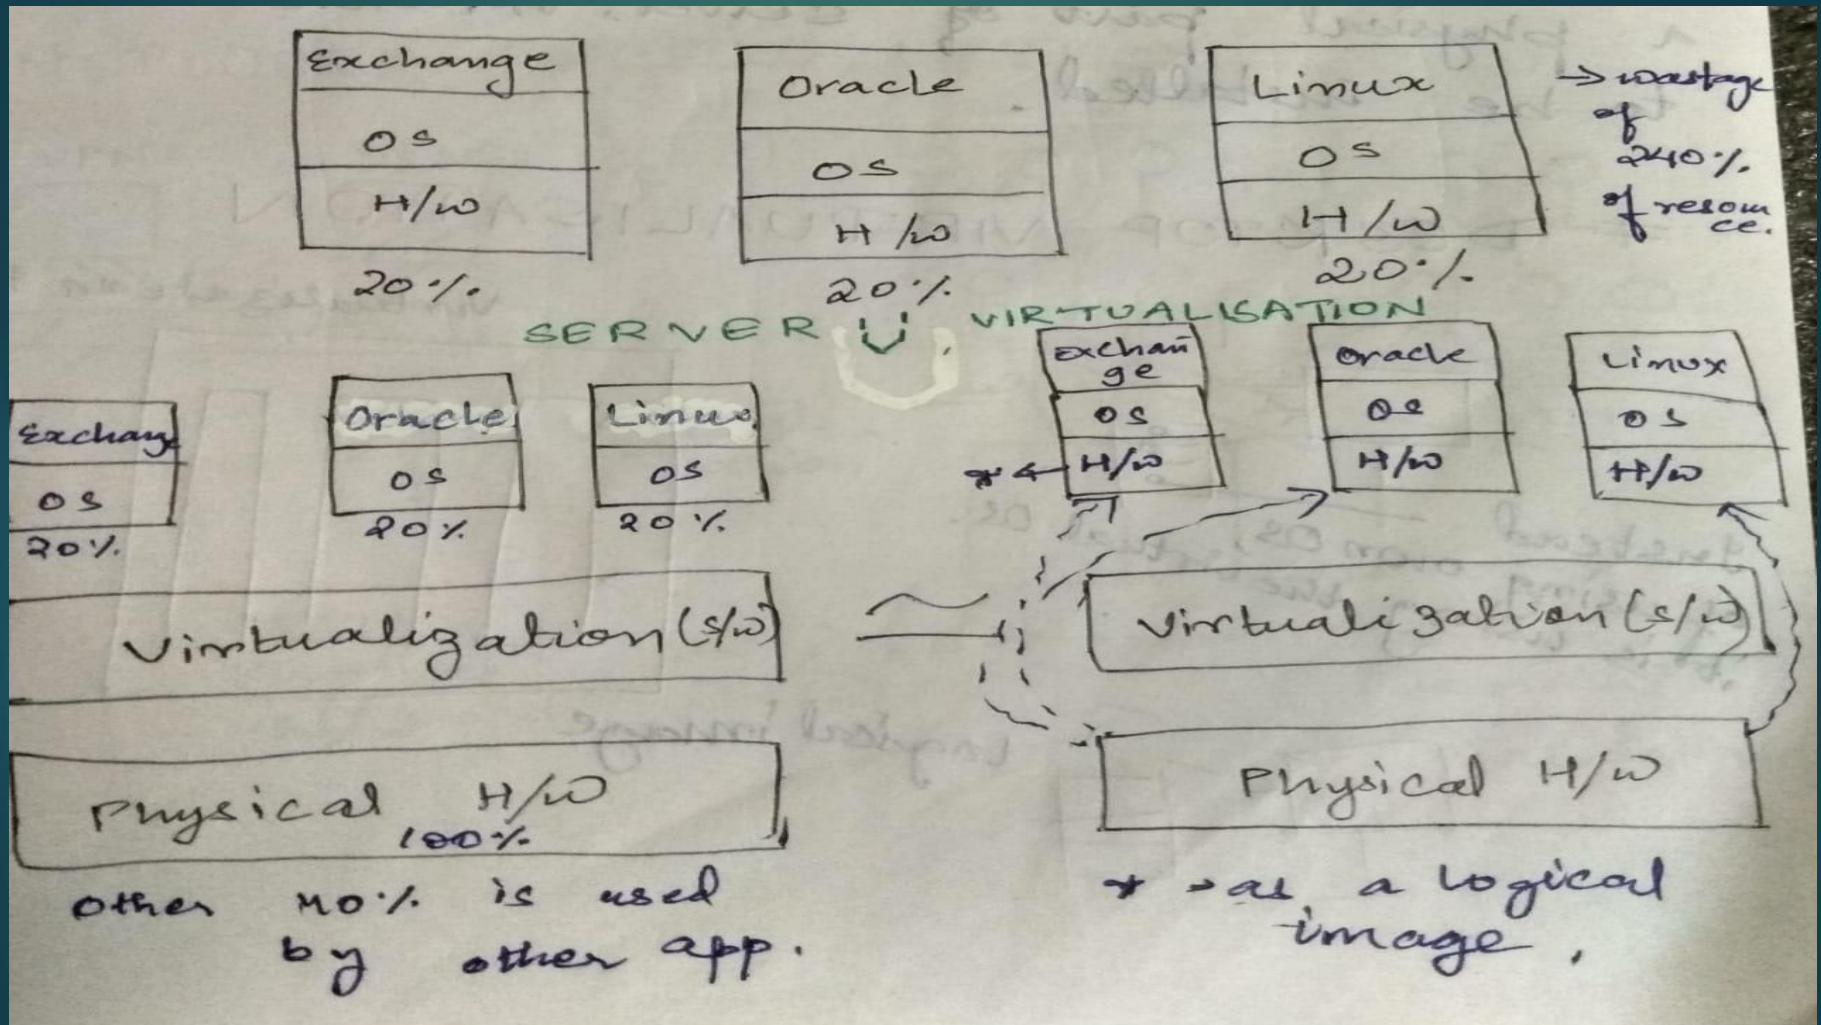 Exchange
OS
H/W
20%
Oracle
OS
H/W
20%
Linux
OS
H/W
20%
→ wastage
of
240%
of resour
ce.
SERVER VIRTUALISATION
Exchang
OS
20%
Oracle
OS
20%
Linux
OS
20%
Virtualization (S/W)
Physical H/W
100%
Other 40% is used
by other app.
Exchan
ge
OS
* ← H/W
Oracle
OS
H/W
Linux
OS
H/W
Virtualization (S/W)
Physical H/W
* → as a logical
image.